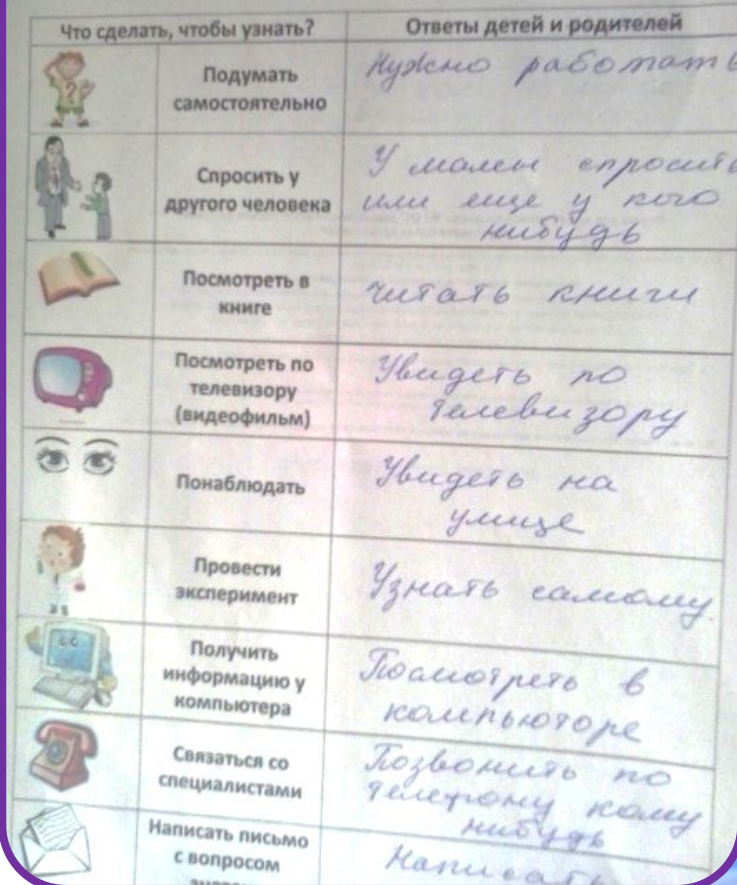 Что сделать, чтобы узнать?
Ответы детей и родителей
Подумать
самостоятельно
Нужно работать
Спросить у
другого человека
У мамы спросить
или еще у кого
нибудь
Посмотреть в
книге
читать книги
Посмотреть по
телевизору
(видеофильм)
Увидеть по
телевизору
Понаблюдать
Увидеть на
улице
Провести
эксперимент
Узнать самому.
Получить
информацию у
компьютера
Посмотреть в
компьюторе
Связаться со
специалистами
Позвонить по
телефону кому
нибудь
Написать письмо
с вопросом
Написать